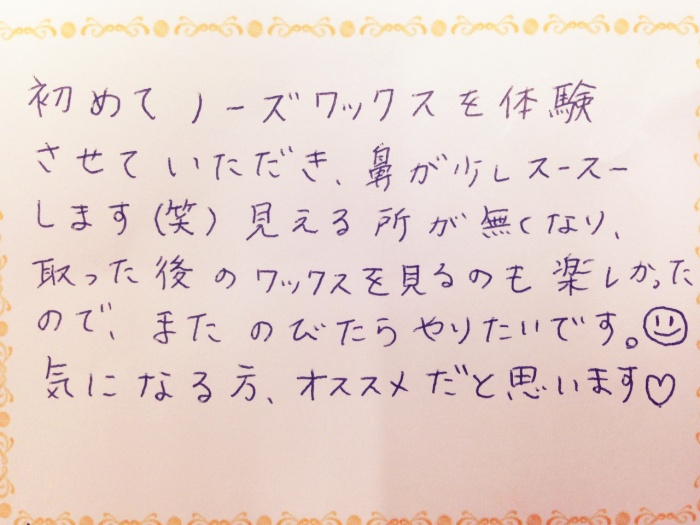 初めてノーズワックスを体験
させていただき、鼻が少しスースー
します(笑) 見える所が無くなり、
取った後のワックスを見るのも楽しかった
ので、またのびたらやりたいです。
気になる方、オススメだと思います♡